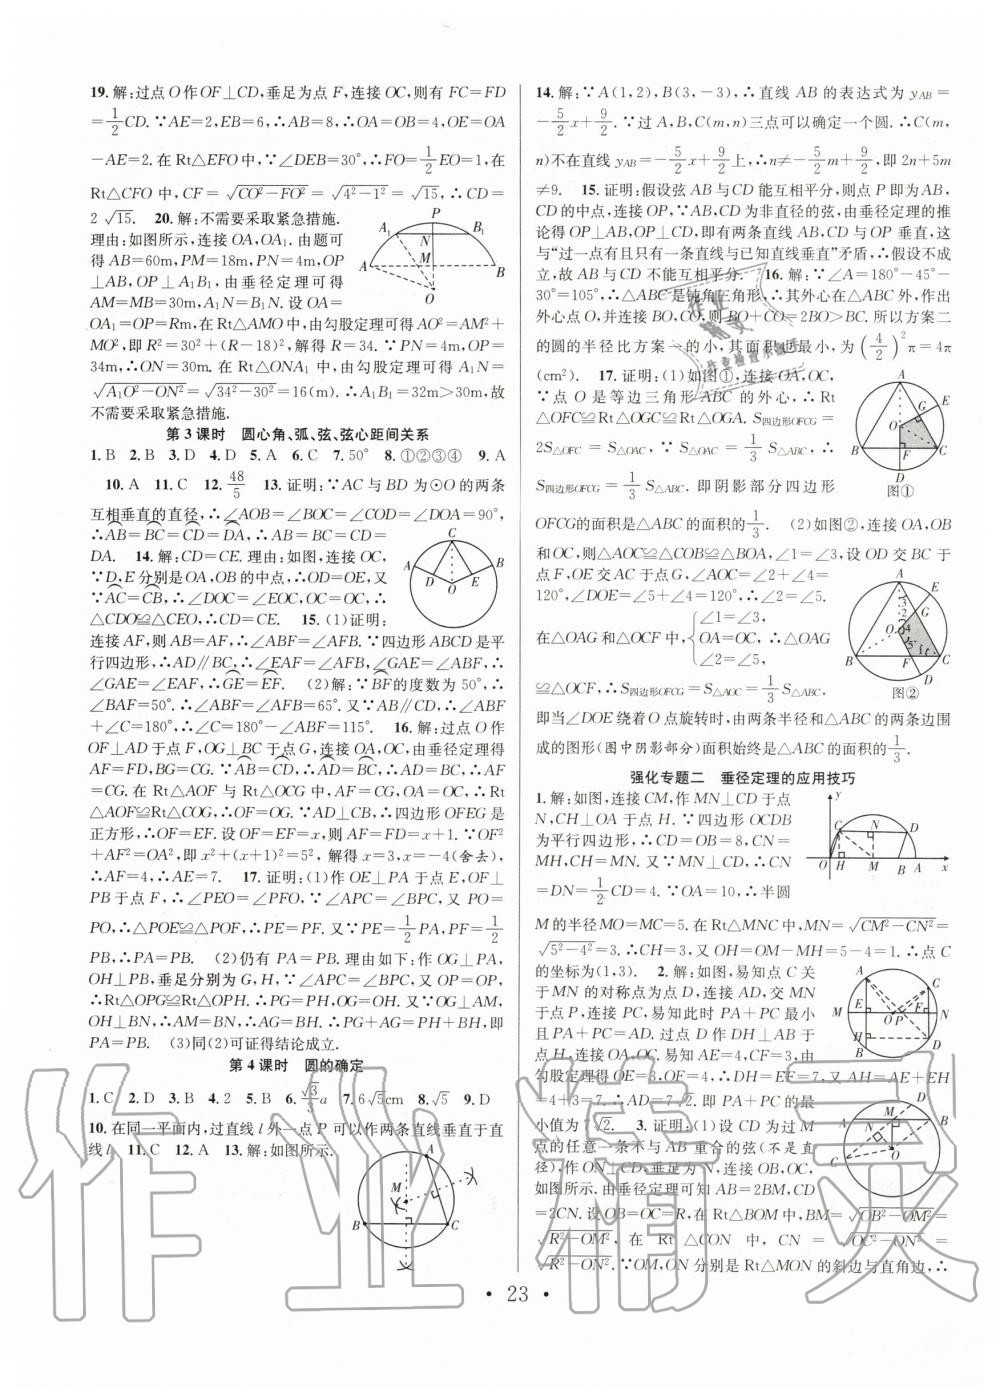 19. 解:过点O作OF⊥CD,垂足为点F,连接OC,则有FC=FD
=1/2CD. ∵AE=2,EB=6,∴AB=8,∴OA=OB=4,OE=OA
-AE=2. 在Rt△EFO中,∵∠DEB=30°,∴FO=1/2EO=1,在
Rt△CFO中,CF=√(CO²-FO²)=√(4²-1²)=√15,∴CD=
2√15. 20. 解:不需要采取紧急措施.
理由:如图所示,连接OA,OA₁. 由题可
得AB=60m,PM=18m,PN=4m,OP
⊥AB,OP⊥A₁B₁,由垂径定理可得
AM=MB=30m,A₁N=B₁N. 设OA=
OA₁=OP=Rm,在Rt△AMO中,由勾股定理可得AO²=AM²+
MO²,即R²=30²+(R-18)²,解得R=34. ∵PN=4m,OP=
34m,∴ON=30m. 在Rt△ONA₁中,由勾股定理可得A₁N=
√(A₁O²-ON²)=√(34²-30²)=16(m). ∴A₁B₁=32m>30m. 故
不需要采取紧急措施.
P
A₁ N B₁
M
A B
O
第3课时 圆心角、弧、弦、弦心距间关系
1. B 2. B 3. D 4. D 5. A 6. C 7. 50° 8. ①②③④ 9. A
10. A 11. C 12. 48/5 13. 证明:∵AC与BD为⊙O的两条
互相垂直的直径,∴∠AOB=∠BOC=∠COD=∠DOA=90°,
∴AB=BC=CD=DA,∴AB=BC=CD=
DA. 14. 解:CD=CE. 理由:如图,连接OC,
∵D,E分别是OA,OB的中点,∴OD=OE,又
∵AC=CB,∴∠DOC=∠EOC,OC=OC,∴
△CDO≌△CEO,∴CD=CE. 15. (1)证明:
连接AF,则AB=AF,∴∠ABF=∠AFB. ∵四边形ABCD是平
行四边形,∴AD∥BC,∴∠EAF=∠AFB,∠GAE=∠ABF,∴
∠GAE=∠EAF,∴GE=EF. (2)解:∵BF的度数为50°,∴
∠BAF=50°. ∴∠ABF=∠AFB=65°. 又∵AB∥CD,∴∠ABF
+∠C=180°,∴∠C=180°-∠ABF=115°. 16. 解:过点O作
OF⊥AD于点F,OG⊥BC于点G,连接OA,OC,由垂径定理得
AF=FD,BG=CG. ∵AB=CD,∴AB=CD,∴AD=BC,∴AF
=CG. 在Rt△AOF与Rt△OCG中,AF=CG,OA=OC,∴Rt
△AOF≌Rt△COG,∴OF=OG. ∵AB⊥CD,∴四边形OFEG是
正方形,∴OF=EF. 设OF=EF=x,则AF=FD=x+1. ∵OF²
+AF²=OA²,即x²+(x+1)²=5²,解得x=3,x=-4(舍去),∴
AF=4,∴AE=7. 17. 证明:(1)作OE⊥PA于点E,OF⊥PB
于点F,∴∠PEO=∠PFO. ∵∠APC=∠BPC,又PO=
PO,∴△POE≌△POF,∴PE=PF. 又∵PE=1/2PA,PF=1/2
PB,∴PA=PB. (2)仍有PA=PB. 理由如下:作OG⊥PA,
OH⊥PB,垂足分别为G,H. ∵∠APC=∠BPC,又OP=OP,∴
Rt△OPG≌Rt△OPH. ∴PG=PH,OG=OH. 又∵OG⊥AM,
OH⊥BN,∴AM=BN,∴AG=BH. ∴PG+AG=PH+BH,即
PA=PB. (3)同(2)可证得结论成立.
C
A B
D O E
第4课时 圆的确定
1. C 2. D 3. B 4. 2 5. B 6. √3/3a 7. 6√5cm 8. √5 9. D
10. 在同一平面内,过直线l外一点P可以作两条直线垂直于直
线l 11. C 12. A 13. 解:如图所示.
A
M
B C
14. 解:∵A(1,2),B(3,-3),∴直线AB的表达式为y_AB=
-5/2x+9/2. ∵过A,B,C(m,n)三点可以确定一个圆. ∴C(m,
n)不在直线y_AB=-5/2x+9/2上,∴n≠-5/2m+9/2,即2n+5m
≠9. 15. 证明:假设弦AB与CD能互相平分,则点P即为AB,
CD的中点,连接OP,∵AB,CD为非直径的弦,由垂径定理的推
论得OP⊥AB,OP⊥CD,即有两条直线AB,CD与OP垂直,这
与“过一点有且只有一条直线与已知直线垂直”矛盾,∴假设不成
立,故AB与CD不能互相平分. 16. 解:∵∠A=180°-45°-
30°=105°,∴△ABC是钝角三角形,∴其外心在△ABC外,作出
外心O,并连接BO,CO,则BO+CO=2BO>BC. 所以方案二
的圆的半径比方案一的小,其面积也最小,为(4/2)²π=4π
(cm²). 17. 证明:(1)如图①,连接OA,OC,
∵点O是等边三角形ABC的外心,∴Rt
△OFC≌Rt△OGC≌Rt△OGA. S四边形OFCG=
2S△OFC=S△OAC. ∵S△OAC=1/3S△ABC,∴
S四边形OFCG=1/3S△ABC. 即阴影部分四边形
OFCG的面积是△ABC的面积的1/3. (2)如图②,连接OA,OB
和OC,则△AOC≌△COB≌△BOA,∠1=∠3,设OD交BC于
点F,OE交AC于点G,∠AOC=∠2+∠4=
120°,∠DOE=∠5+∠4=120°,∴∠2=∠5.
在△OAG和△OCF中,{∠1=∠3, OA=OC, ∠2=∠5,∴△OAG
≌△OCF,∴S四边形OFCG=S△AOC=1/3S△ABC,
即当∠DOE绕着O点旋转时,由两条半径和△ABC的两条边围
成的图形(图中阴影部分)面积始终是△ABC的面积的1/3.
A
G E
O
B F C
D
图①
A
E
G
O
B F C
D
图②
强化专题二 垂径定理的应用技巧
1. 解:如图,连接CM,作MN⊥CD于点
N,CH⊥OA于点H. ∵四边形OCDB
为平行四边形,∴CD=OB=8,CN=
MH,CH=MN. 又∵MN⊥CD,∴CN
=DN=1/2CD=4. ∵OA=10,∴半圆
M的半径MO=MC=5. 在Rt△MNC中,MN=√(CM²-CN²)=
√(5²-4²)=3. ∴CH=3,又OH=OM-MH=5-4=1. ∴点C
的坐标为(1,3). 2. 解:如图,易知点C关
于MN的对称点为点D,连接AD,交MN
于点P,连接PC,易知此时PA+PC最小
且PA+PC=AD. 过点D作DH⊥AB于
点H,则DH=MN=10. 连接OA,OC,由
勾股定理得OE=3,OF=4,∴AH=AE+EH
=4+3=7,∴AD=7√2. 即PA+PC的最
小值为7√2. 3. 证明:(1)设CD为过点
M的任意一条不与AB重合的弦(不是直
径),作ON⊥CD,垂足为N,连接OB,OC,
如图所示. 由垂径定理可知AB=2BM,CD
=2CN. 设OB=OC=R,在Rt△BOM中,BM=√(OB²-OM²)=
√(R²-OM²),在Rt△CON中,CN=√(OC²-ON²)=
√(R²-ON²). ∵OM,ON分别是Rt△MON的斜边与直角边,∴
y
C N D
O H M B A x
A C
M E O P F N
H D
A M B
C N D
O
• 23 •
作业精灵